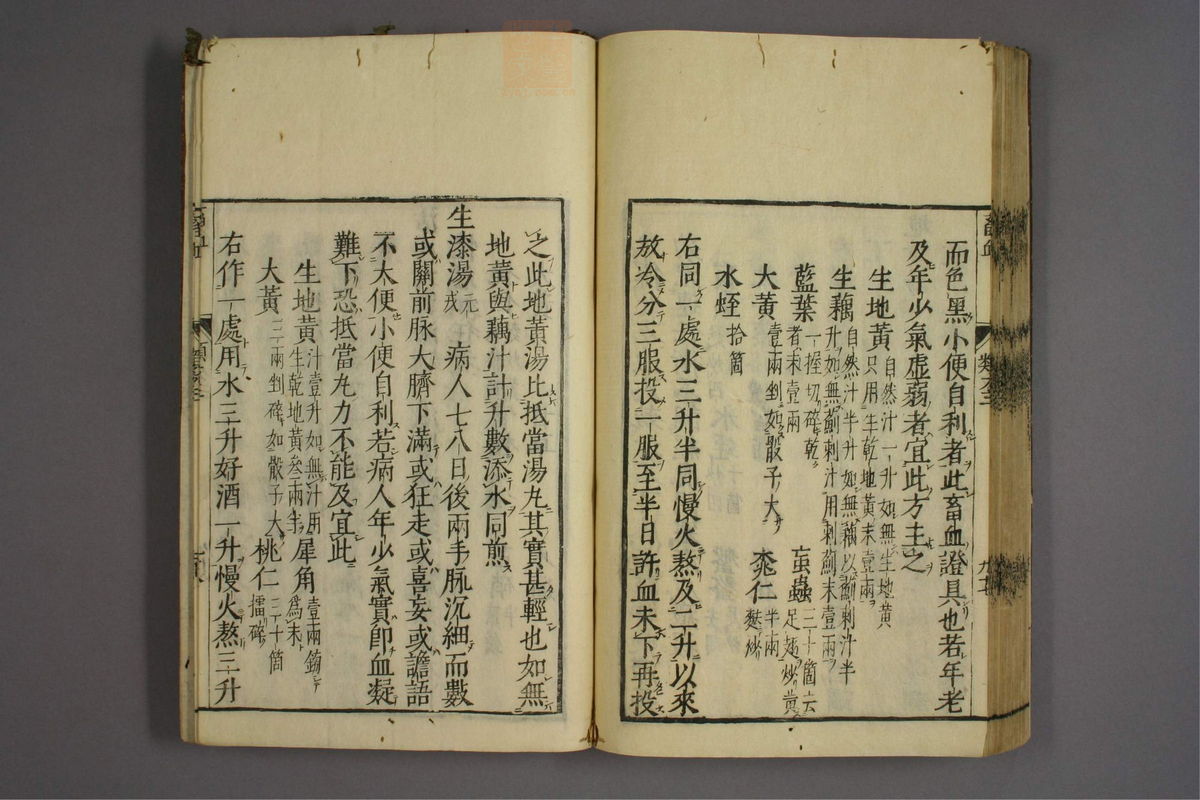 而色黑小便自利者此畜血證具也若年老
及年少氣虛弱者宜此方主之
生地黃 自然汁一升如無生地黃
只用生乾地黃末壹兩
生藕 自然汁半升如無藕以薊刺汁半
升如無薊刺汁用刺薊末壹兩
藍葉 一握切碎乾
者末壹兩
䖟蟲 三十箇去
足翅炒黃
大黃 壹兩剉如骰子大
桃仁 半兩
麩炒
水蛭 拾箇
右同一處水三升半同慢火熬及二升以來
放冷分三服投一服至半日許血未下再投
之此地黃湯比抵當湯丸其實甚輕也如無
地黃與藕汁計升數添水同煎
生漆湯 元戎 病人七八日後兩手脉沉細而數
或關前脉大臍下滿或狂走或喜妄或譫語
不大便小便自利若病人年少氣實即血凝
難下恐抵當丸力不能及宜此
生地黃 汁壹升如無汁用
生乾地黃叁兩半
犀角 壹兩鎊
爲末
大黃 三兩剉碎如骰子大
桃仁 三十箇
擂碎
右作一處用水三升好酒一升慢火熬三升